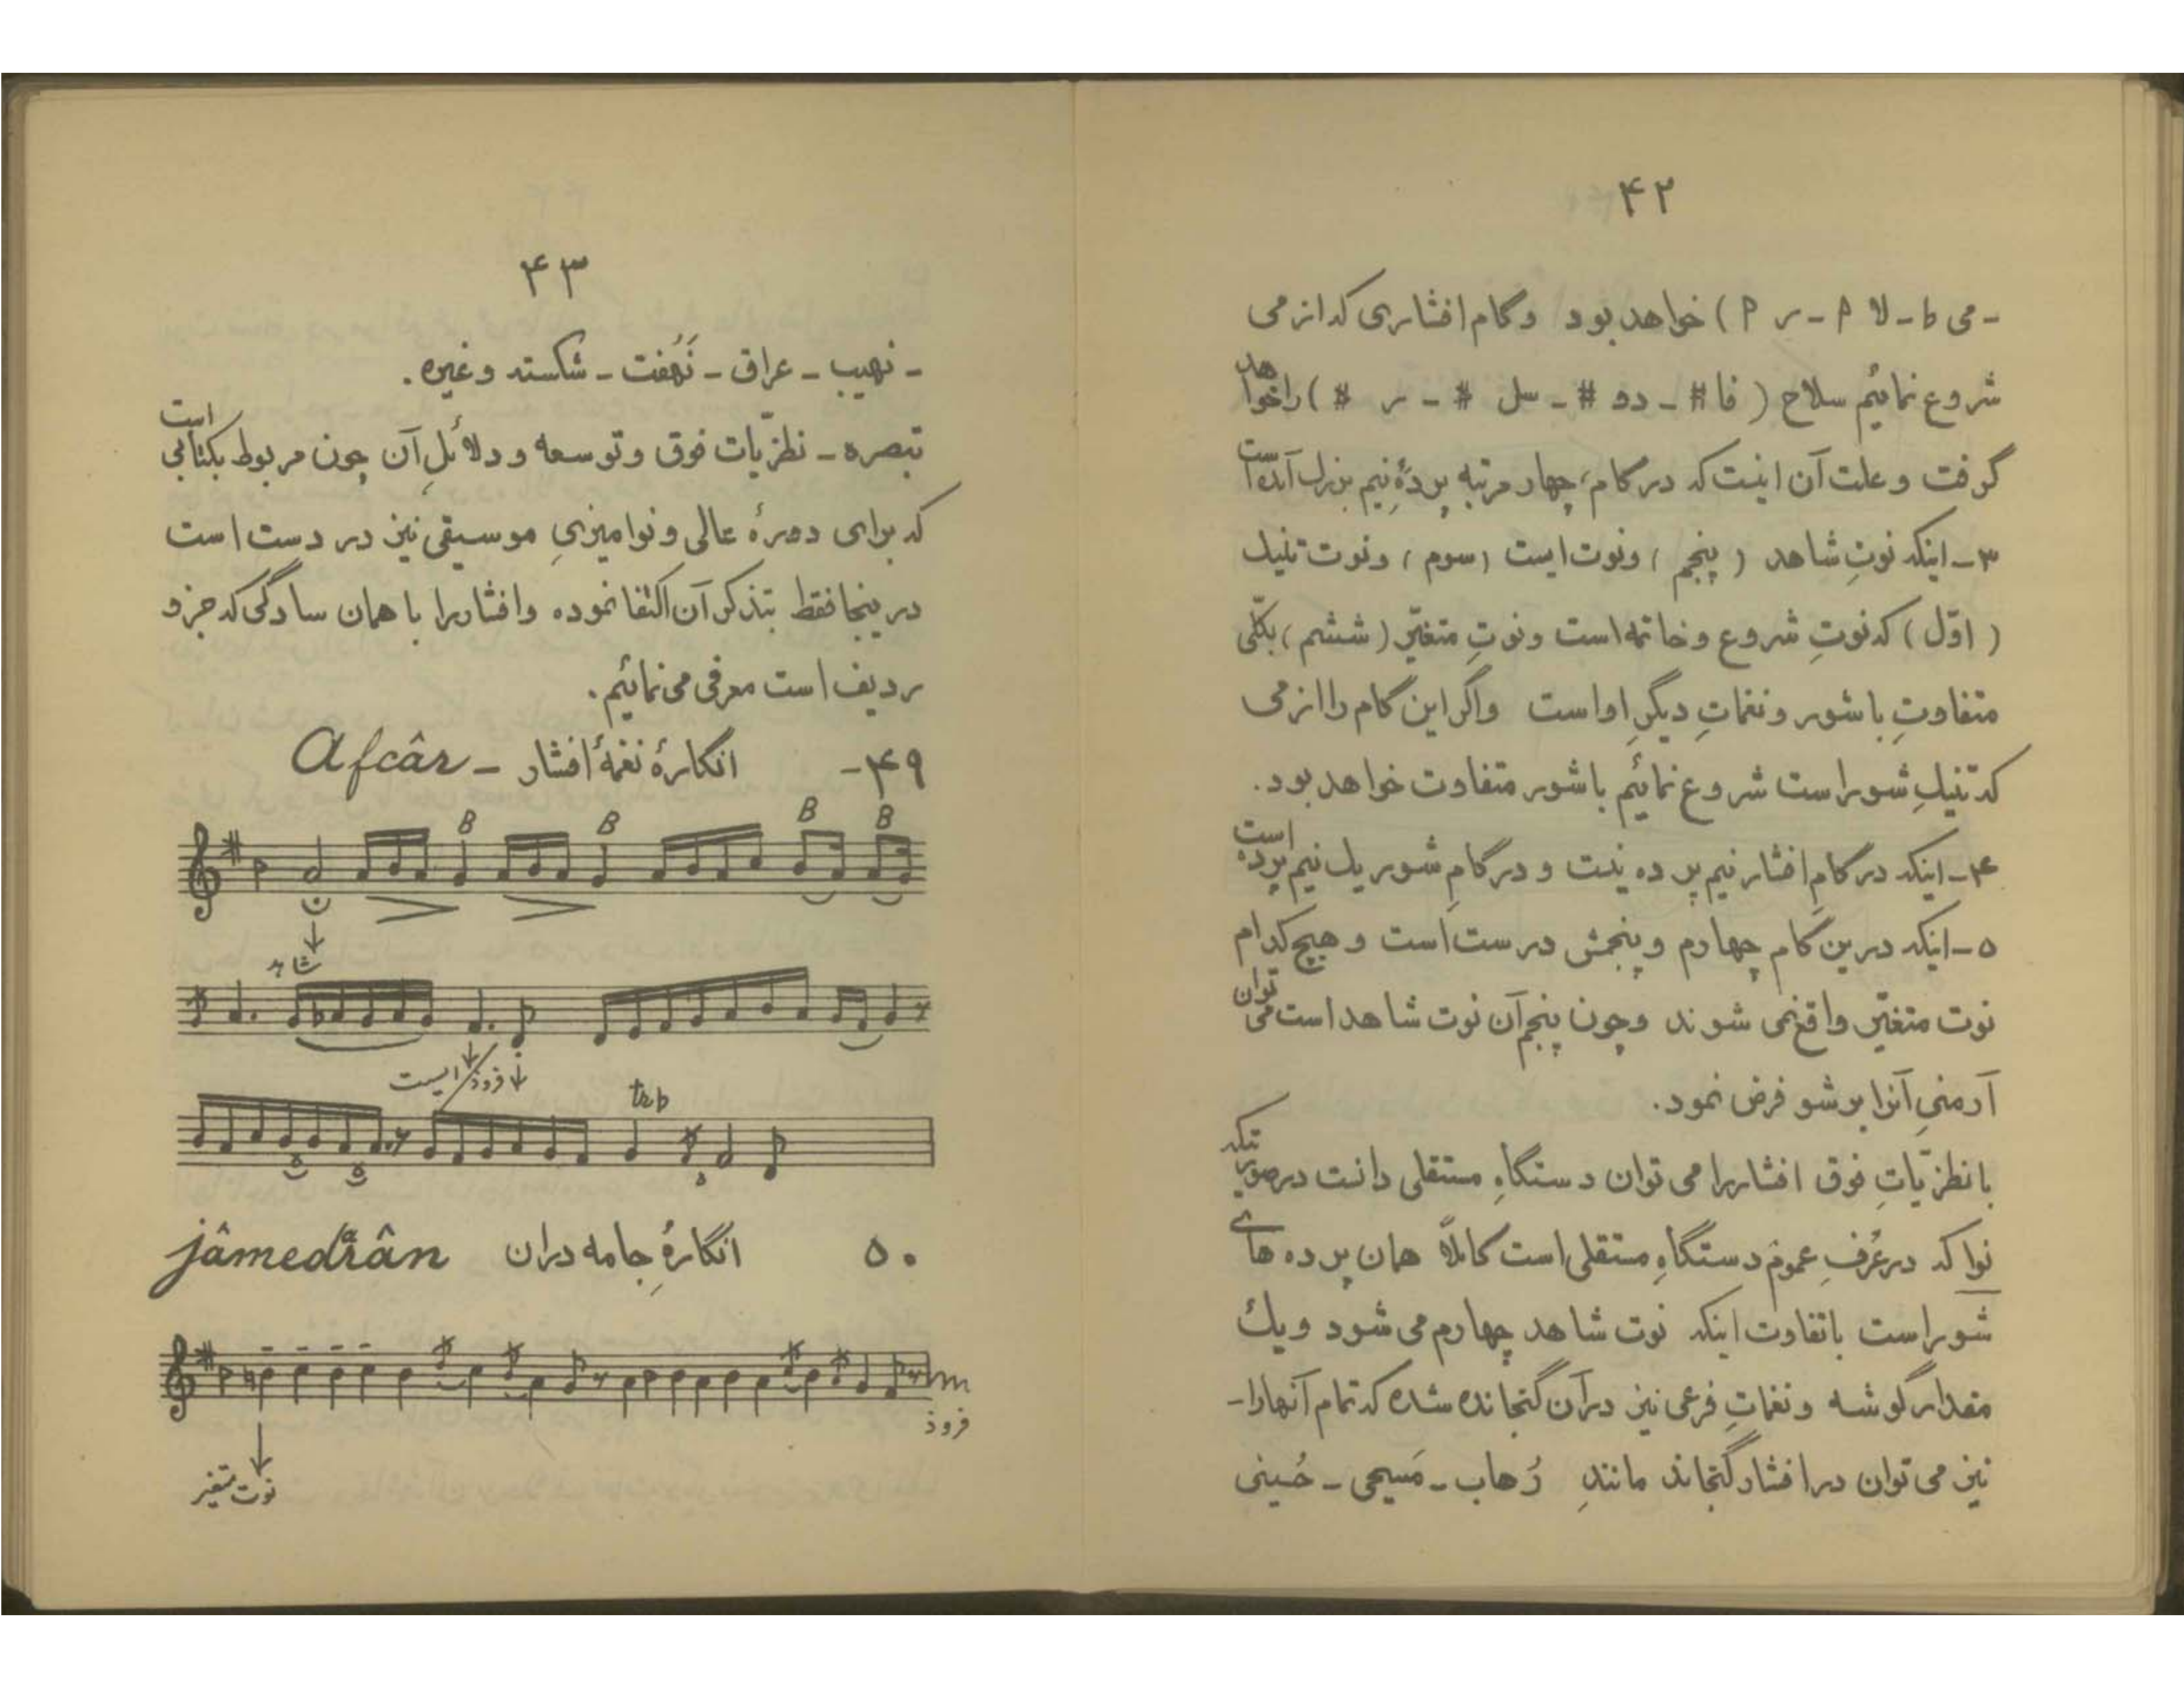 ۴۲
- می b - لا P - ر P ) خواهد بود وگام افشاری که از می
شروع نمائیم سلاح ( فا # - دو # - سل # - ر # ) را خواهد
گرفت و علت آن اینست که در گام، چهار مرتبه پردهٔ نیم بزرگ آمده است
۳- اینکه نوتِ شاهد ( پنجم ) ونوت ایست ( سوم ) ونوت تنیک
( اوّل ) که نوتِ شروع و خاتمه است ونوتِ متغیّر ( ششم ) بکلّی
متفاوتِ با شور و نغماتِ دیگرِ اواست واگر این گام را از می
که تنیکِ شور است شروع نمائیم با شور متفاوت خواهد بود.
۴- اینکه در گامِ افشار نیم پرده نیست و در گامِ شور یک نیم پرده است
۵- اینکه درین گام چهارم و پنجمش درست است و هیچ کدام
نوت متغیّر واقع نمی شوند وچون پنجم آن نوت شاهد است می توان
آرمنیِ آنرا بر شو فرض نمود.
با نظریّاتِ فوق افشار را می توان دستگاهِ مستقلی دانست در صورتیکه
نوا که در عُرفِ عموم دستگاهِ مستقلی است کاملاً همان پرده های
شور است باتفاوت اینکه نوت شاهد چهارم می شود و یک
مقدار گوشه و نغماتِ فرعی نیز در آن گنجانده شده که تمام آنهارا -
نیز می توان در افشار گنجاند مانندِ رُهاب - مَسیحی - حُسینی
۴۳
- نهیب - عراق - نَهُفت - شکسته وغیره.
تبصره - نظریّات فوق و توسعه و دلائلِ آن چون مربوط بکتابی است
که برای دورهٔ عالی و نوامیزیِ موسیقی نیز در دست است
درینجا فقط بتذکر آن اکتفا نموده وافشار را با همان سادگی که جزو
ردیف است معرفی می نمائیم.
۴۹- انگارهٔ نغمهٔ افشار - Afcâr
B B B B
شاهد
ایست فرود
trb
۵۰ انگارهٔ جامه دران jâmedrân
فرود
نوت متغیر